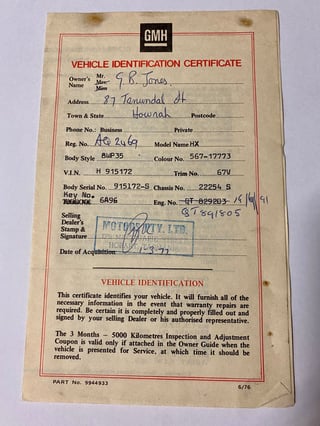 GMH
VEHICLE IDENTIFICATION CERTIFICATE
Owner's Name Mr. Mrs. Miss G R Jones
Address 87 St
Town & State Howrah Postcode
Phone No.: Business Private
Reg. No. AQ 2469 Model Name HX
Body Style 8WP35 Colour No. 567-17773
V.I.N. H 915172 Trim No. 67V
Body Serial No. 915172-S Chassis No. 22254 S
Key No. 6A96 Eng. No. QT 829203 /91
QT 891805
Selling
Dealer's
Stamp & MOTORS PTY. LTD.
Signature
Date of Acquisition 1.3.77
VEHICLE IDENTIFICATION
This certificate identifies your vehicle. It will furnish all of the
necessary information in the event that warranty repairs are
required. Be certain it is completely and properly filled out and
signed by your selling Dealer or his authorised representative.
The 3 Months - 5000 Kilometres Inspection and Adjustment
Coupon is valid only if attached in the Owner Guide when the
vehicle is presented for Service, at which time it should be
removed.
PART No. 9944933 6/76